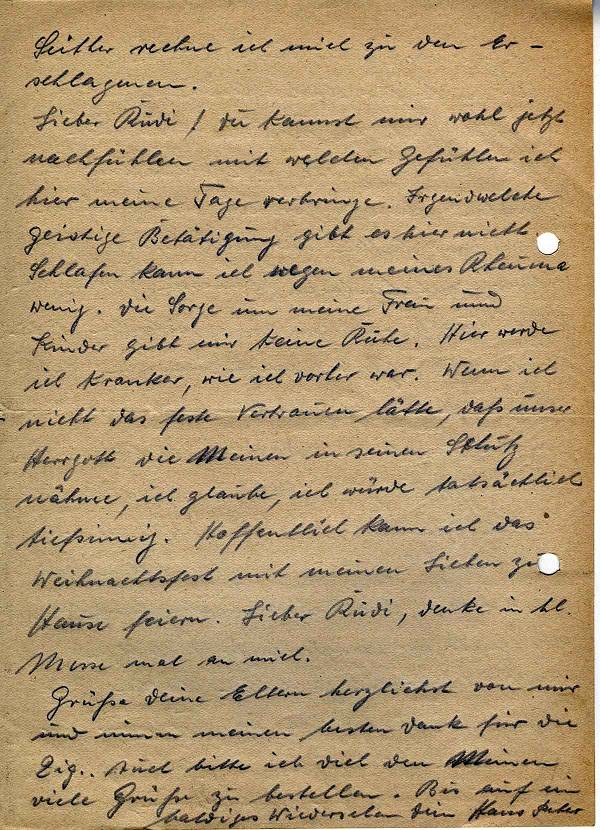 Seither rechne ich mich zu den Er-
schlagenen.
Lieber Rudi! Du kannst mir wohl jetzt
nachfühlen mit welchen Gefühlen ich
hier meine Tage verbringe. Irgendwelche
geistige Betätigung gibt es hier nicht
Schlafen kann ich wegen meines Rheuma
wenig. Die Sorge um meine Frau und
Kinder gibt mir keine Ruhe. Hier werde
ich kranker, wie ich vorher war. Wenn ich
nicht das feste Vertrauen hätte, daß unser
Herrgott die Meinen in seinen Schutz
nähme, ich glaube, ich würde tatsächlich
tiefsinnig. Hoffentlich kann ich das
Weihnachtsfest mit meinen Lieben zu
Hause feiern. Lieber Rudi, denke in hl.
Messe mal an mich.
Grüße deine Eltern herzlichst von mir
und nimm meinen besten Dank für die
Zig.. Auch bitte ich dich den Meinen
viele Grüße zu bestellen. Bis auf ein
baldiges Wiedersehen dein Hans